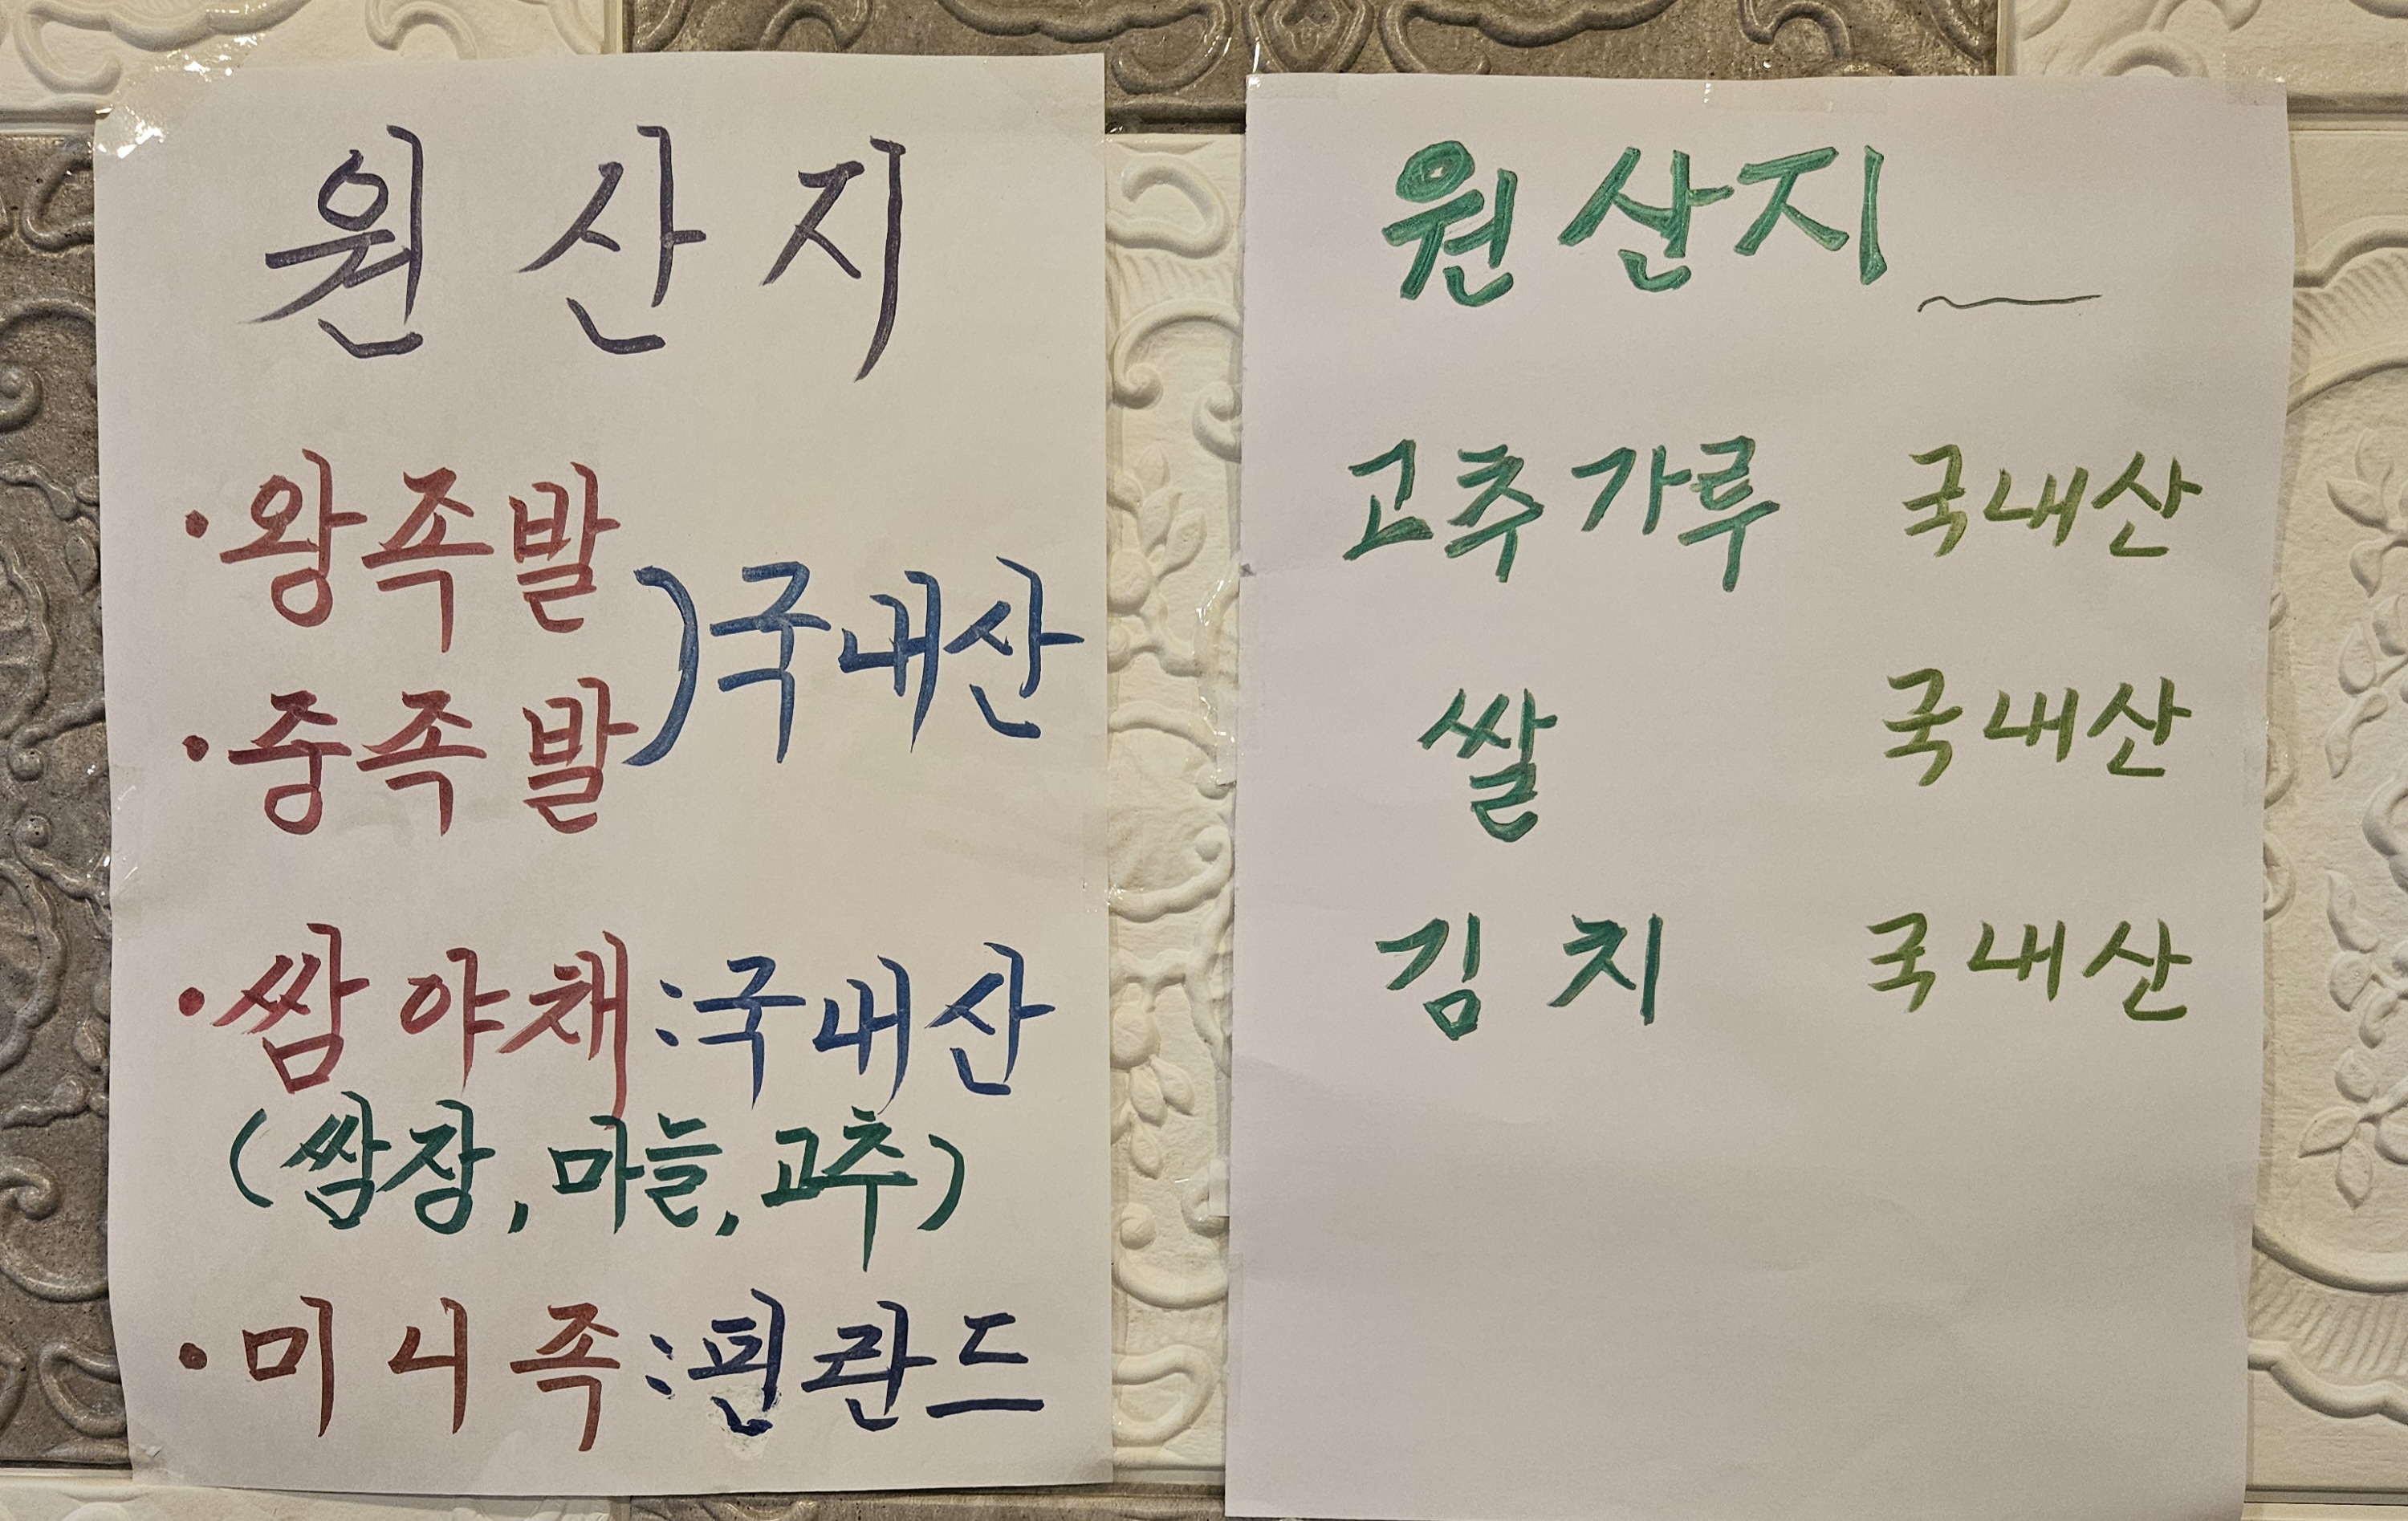 원산지
• 왕족발
) 국내산
• 중족발
• 쌈야채 : 국내산
(쌈장, 마늘, 고추)
• 미니족 : 핀란드
원산지
고추가루 국내산
쌀 국내산
김치 국내산